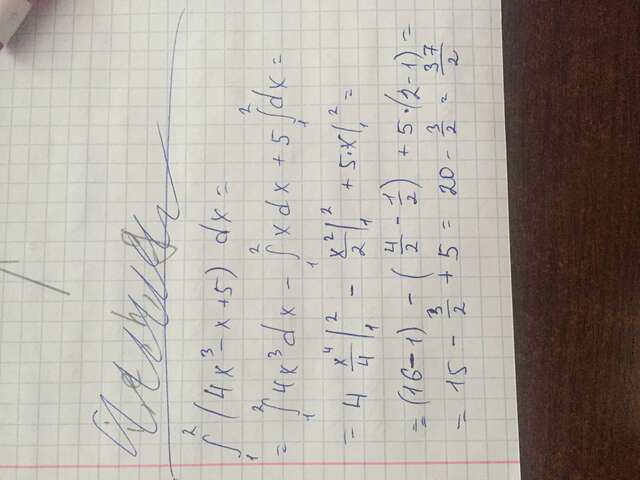 ∫₁² (4x³ - x + 5) dx =
= ∫₁² 4x³ dx - ∫₁² x dx + 5 ∫₁² dx =
= 4 x⁴/4 |₁² - x²/2 |₁² + 5·x |₁² =
= (16 - 1) - (4/2 - 1/2) + 5·(2 - 1) =
= 15 - 3/2 + 5 = 20 - 3/2 = 37/2